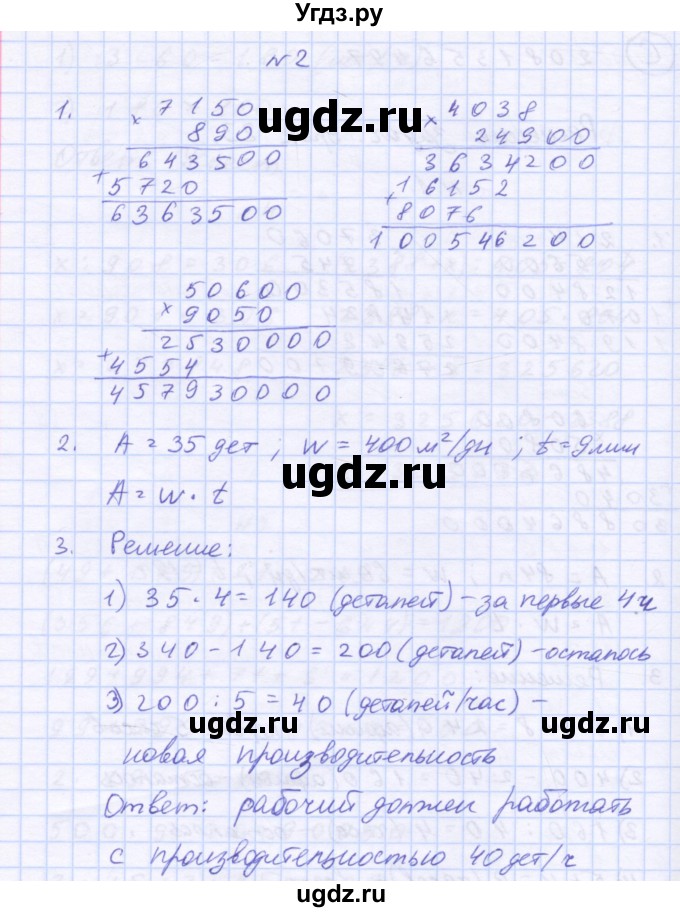 Угдз.ру
№2
1.
× 7150
890
643500
+ 5720
6363500
× 4038
24900
3634200
+ 16152
8076
100546200
50600
× 9050
2530000
+ 4554
457930000
2. A = 35 дет ; W = 400 м²/дн ; t = 9 мин
A = W · t
3. Решение:
1) 35 · 4 = 140 (деталей) – за первые 4 ч
2) 340 – 140 = 200 (деталей) – осталось
3) 200 : 5 = 40 (деталей/час) –
новая производительность
Ответ: рабочий должен работать
с производительностью 40 дет/ч
ugdz.ru
ugdz.ru
ugdz.ru
ugdz.ru
ugdz.ru
ugdz.ru
ugdz.ru
ugdz.ru